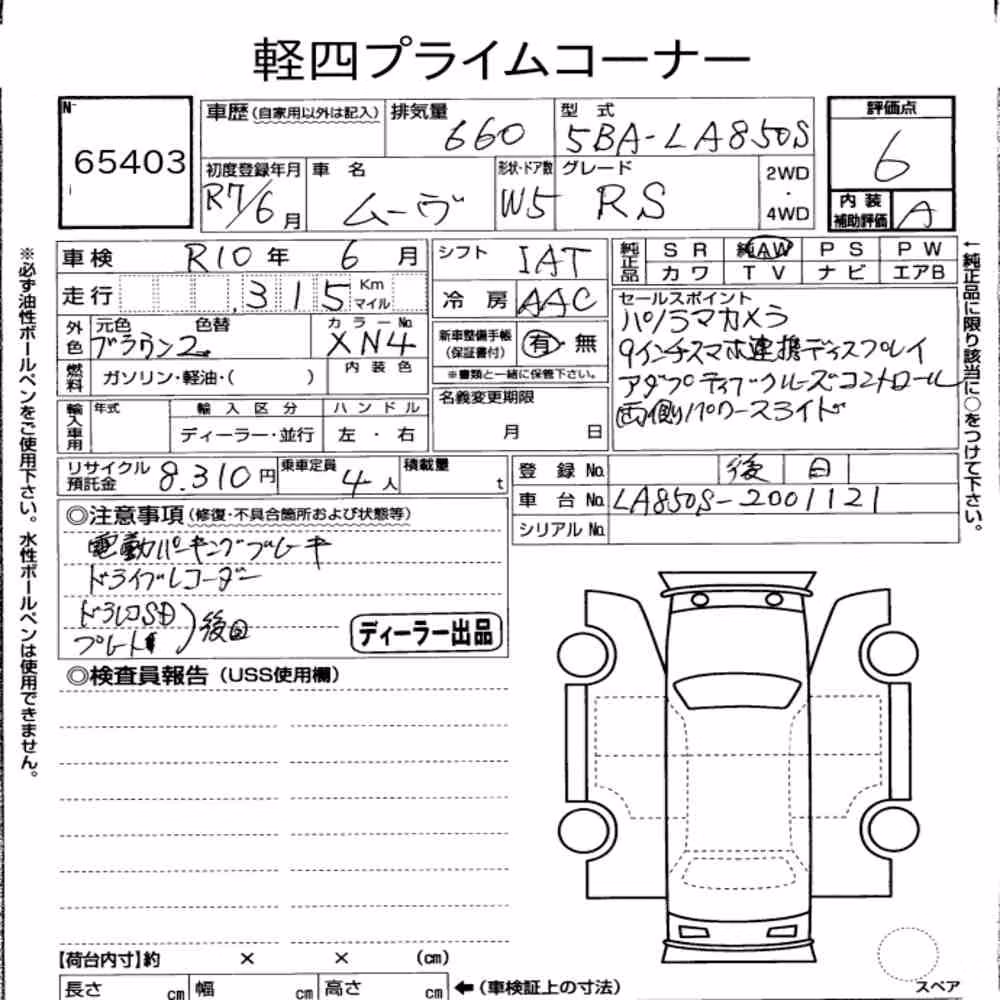 軽四プライムコーナー
No 65403
車歴(自家用以外は記入) 排気量 660 型式 5BA-LA850S
評価点 6
初度登録年月 R7/6月 車名 ムーヴ 形状・ドア数 W5 グレード RS 2WD・4WD
内装補助評価 A
※必ず油性ボールペンをご使用下さい。水性ボールペンは使用できません。
車検 R10年 6月 シフト IAT
純正品 SR 純AW PS PW
カワ TV ナビ エアB
←純正品に限り該当に○をつけて下さい。
走行 315 Km マイル
冷房 AAC
セールスポイント
パノラマカメラ
9インチスマホ連携ディスプレイ
アダプティブクルーズコントロール
両側パワースライド
外色 元色 ブラウン2 色替 カラーNo. XN4
新車整備手帳(保証書付) 有・無
※書類と一緒に保管下さい。
燃料 ガソリン・軽油・( ) 内装色
名義変更期限 月 日
輸入車用 年式 輸入区分 ハンドル
ディーラー・並行 左・右
リサイクル預託金 8.310円 乗車定員 4人 積載量 t
登録No. 後日
車台No. LA850S-2001121
シリアルNo.
◎注意事項(修復・不具合箇所および状態等)
電動パーキングブレーキ
ドライブレコーダー
ドラレコSD
プレート
後日
ディーラー出品
◎検査員報告(USS使用欄)
【荷台内寸】約 × × (cm)
長さ cm 幅 cm 高さ cm ←(車検証上の寸法)
スペア